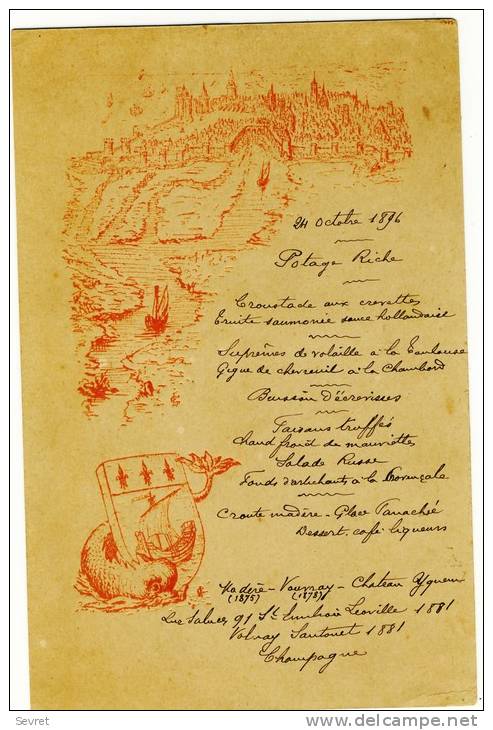 24 Octobre 1896
Potage Riche
Croustade aux crevettes
Truite saumonée sauce hollandaise
Suprêmes de volaille à la Toulouse
Gigue de chevreuil à la Chambord
Buisson d'écrevisses
Faisans truffés
Chaud froid de mauviettes
Salade Russe
Fonds d'artichauts à la Provençale
Croute madère - Glace Panachée
Dessert, café liqueurs
Madère - Vouvray - Chateau Yquem
(1875) (1878)
Lur Saluces 91 St Leoville 1881
Volnay Santenot 1881
Champagne
Sevret
delcampe.net